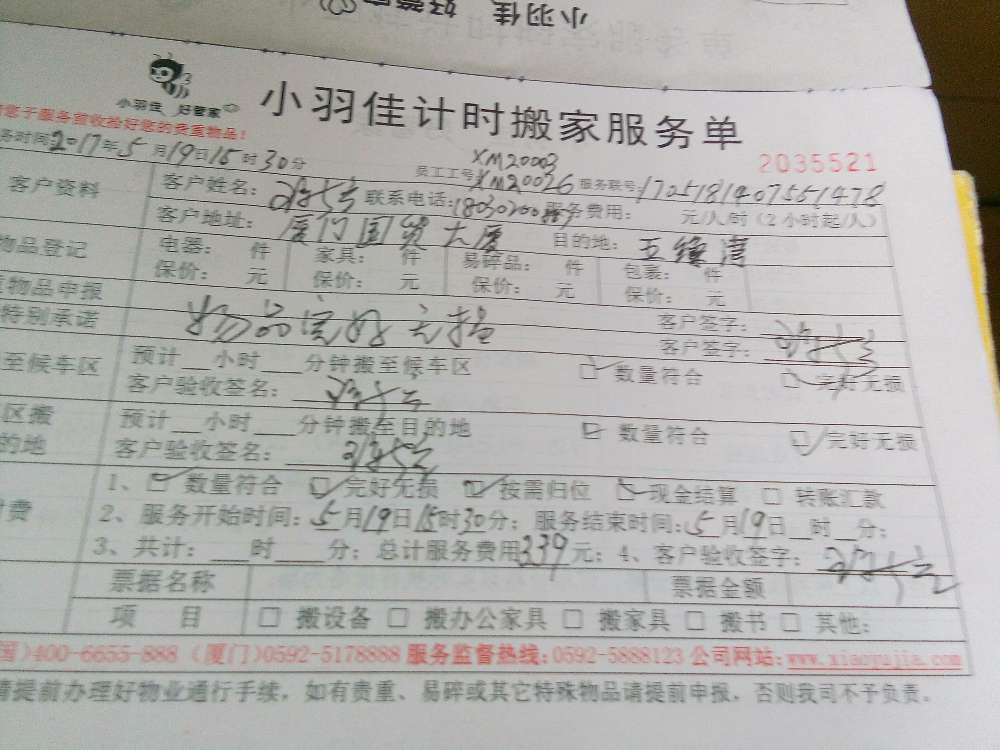 小羽佳 好管家
小羽佳 好管家
小羽佳计时搬家服务单
您于服务前收拾好您的贵重物品!
2035521
务时间2017年5月19日15时30分
员工工号XM20003
XM20026 服务联号1705181407551478
客户资料 客户姓名: 联系电话: 服务费用: 元/人/时(2小时起/人)
客户地址:厦门国贸大厦 目的地:五缘湾
物品登记 电器: 件 家具: 件 易碎品: 件 包裹: 件
保价: 元 保价: 元 保价: 元 保价: 元
物品申报 客户签字:
特别承诺 物品完好无损 客户签字:
至候车区 预计__小时___分钟搬至候车区 数量符合 完好无损
客户验收签名:
区搬 预计__小时___分钟搬至目的地 数量符合 完好无损
的地 客户验收签名:
付费 1、 数量符合 完好无损 按需归位 现金结算 转账汇款
2、服务开始时间:5月19日15时30分; 服务结束时间:5月19日__时__分;
3、共计:___时____分; 总计服务费用339元; 4、客户验收签字:
票据名称 票据金额
项 目 搬设备 搬办公家具 搬家具 搬书 其他:
国)400-6655-888 (厦门)0592-5178888 服务监督热线:0592-5888123 公司网站:www.xiaoyujia.com
请提前办理好物业通行手续,如有贵重、易碎或其它特殊物品请提前申报,否则我司不予负责。